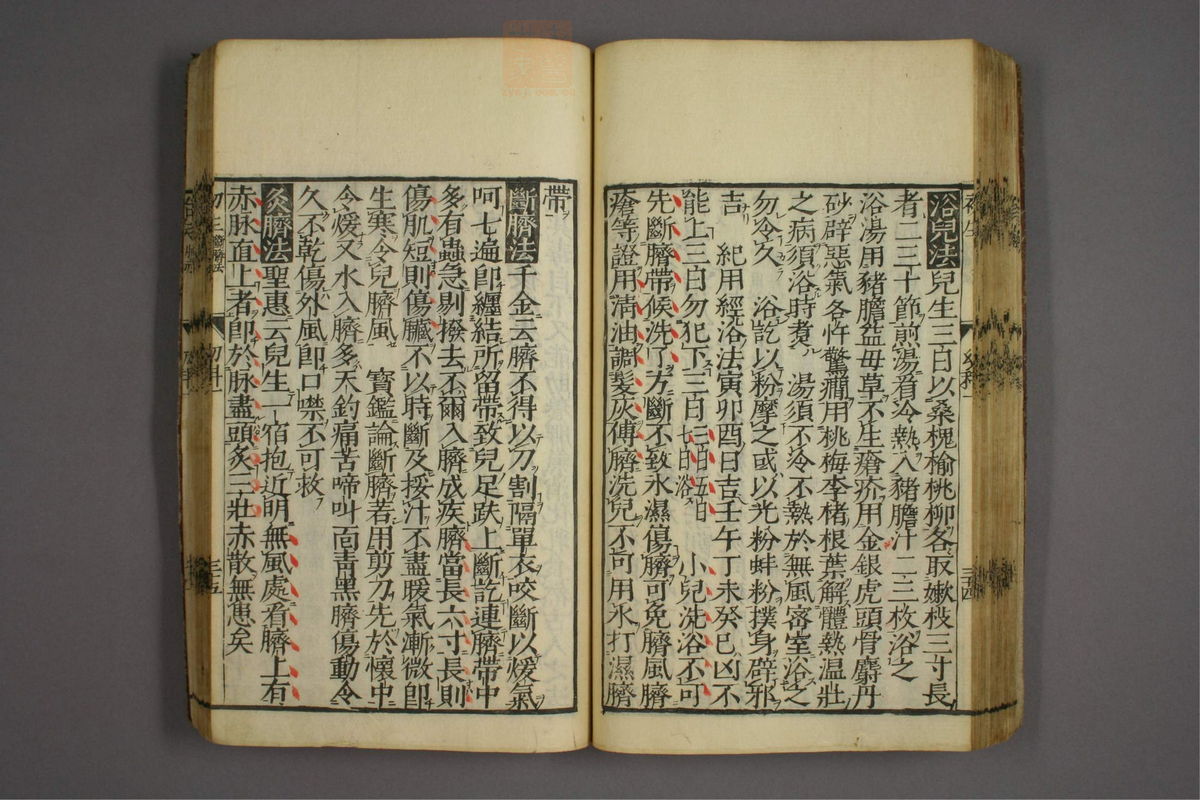 浴兒法兒生三日以桑槐榆桃柳各取嫩枝三寸長
者二三十節煎湯看冷熱入豬膽汁二三枚浴之
浴湯用豬膽益母草不生瘡疥用金銀虎頭骨麝丹
砂辟惡氣客忤驚癇用桃梅李楮根葉解體熱溫壯
之病須浴時煑湯須不冷不熱於無風密室浴之
勿令久 浴訖以粉摩之或以光粉蚌粉撲身辟邪
吉 紀用經浴法寅卯酉日吉壬午丁未癸巳凶不
能上三日勿犯下三日二日五日七日浴 小兒洗浴不可
先斷臍帶候洗了方斷不致水濕傷臍可免臍風臍
瘡等證用淸油調髮灰傅臍洗兒不可用水打濕臍
帶
斷臍法千金云臍不得以刀割隔單衣咬斷以煖氣
呵七遍卽纏結所留帶致兒足趺上斷訖連臍帶中
多有蟲急剔撥去不爾入臍成疾臍當長六寸長則
傷肌短則傷臟不以時斷及挼汁不盡暖氣漸微卽
生寒令兒臍風 寶鑑論斷臍若用剪刀先於懷中
令煖又水入臍多天釣痛苦啼叫面靑黑臍傷動令
久不乾傷外風卽口噤不可救
灸臍法聖惠云兒生一宿抱近明無風處看臍上有
赤脉面上者卽於脉盡頭炙三壯赤散無患矣